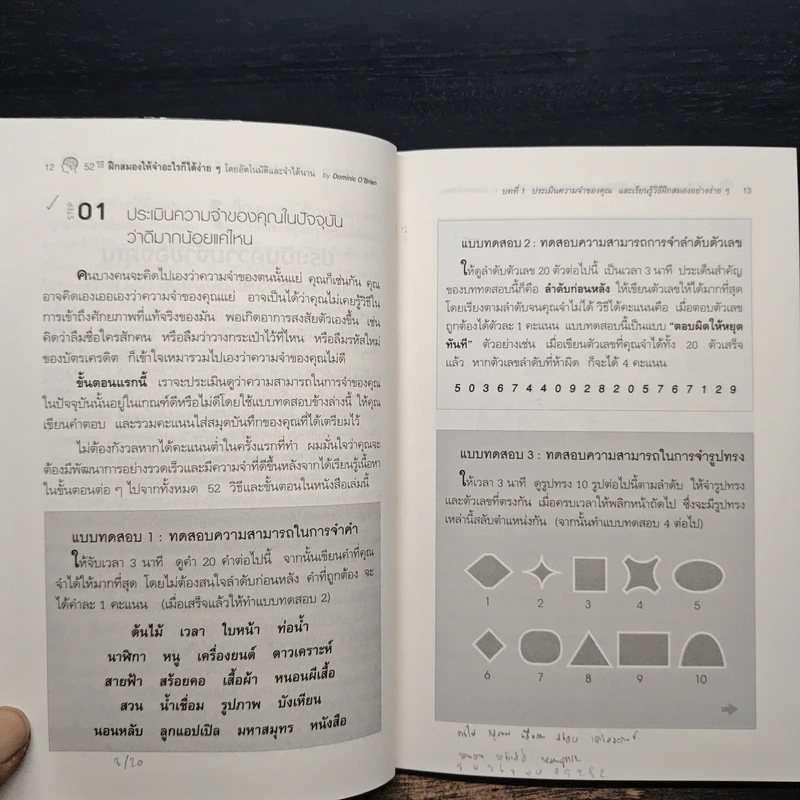 12 52 วิธี ฝึกสมองให้จำอะไรก็ได้ง่าย ๆ โดยอัตโนมัติและจำได้นาน by Dominic O'Brien
STEP 01 ประเมินความจำของคุณในปัจจุบัน
ว่าดีมากน้อยแค่ไหน
คนบางคนจะคิดไปเองว่าความจำของตนนั้นแย่ คุณก็เช่นกัน คุณ
อาจคิดเองเออเองว่าความจำของคุณแย่ อาจเป็นได้ว่าคุณไม่เคยรู้วิธีใน
การเข้าถึงศักยภาพที่แท้จริงของมัน พอเกิดอาการสงสัยตัวเองขึ้น เช่น
คิดว่าลืมชื่อใครสักคน หรือลืมว่าวางกระเป๋าไว้ที่ไหน หรือลืมรหัสใหม่
ของบัตรเครดิต ก็เข้าใจเหมารวมไปเองว่าความจำของคุณไม่ดี
ขั้นตอนแรกนี้ เราจะประเมินดูว่าความสามารถในการจำของคุณ
ในปัจจุบันนั้นอยู่ในเกณฑ์ดีหรือไม่ดีโดยใช้แบบทดสอบข้างล่างนี้ ให้คุณ
เขียนคำตอบ และรวมคะแนนใส่สมุดบันทึกของคุณที่ได้เตรียมไว้
ไม่ต้องกังวลหากได้คะแนนต่ำในครั้งแรกที่ทำ ผมมั่นใจว่าคุณจะ
ต้องมีพัฒนาการอย่างรวดเร็วและมีความจำที่ดีขึ้นหลังจากได้เรียนรู้เนื้อหา
ในขั้นตอนต่อ ๆ ไปจากทั้งหมด 52 วิธีและขั้นตอนในหนังสือเล่มนี้
แบบทดสอบ 1 : ทดสอบความสามารถในการจำคำ
ให้จับเวลา 3 นาที ดูคำ 20 คำต่อไปนี้ จากนั้นเขียนคำที่คุณ
จำได้ให้มากที่สุด โดยไม่ต้องสนใจลำดับก่อนหลัง คำที่ถูกต้อง จะ
ได้คำละ 1 คะแนน (เมื่อเสร็จแล้วให้ทำแบบทดสอบ 2)
ต้นไม้ เวลา ใบหน้า ท่อน้ำ
นาฬิกา หนู เครื่องยนต์ ดาวเคราะห์
สายฟ้า สร้อยคอ เสื้อผ้า หนอนผีเสื้อ
สวน น้ำเชื่อม รูปภาพ บังเหียน
นอนหลับ ลูกแอปเปิล มหาสมุทร หนังสือ
/20
บทที่ 1 ประเมินความจำของคุณ และเรียนรู้วิธีฝึกสมองอย่างง่าย ๆ 13
แบบทดสอบ 2 : ทดสอบความสามารถการจำลำดับตัวเลข
ให้ดูลำดับตัวเลข 20 ตัวต่อไปนี้ เป็นเวลา 3 นาที ประเด็นสำคัญ
ของบททดสอบนี้ก็คือ ลำดับก่อนหลัง ให้เขียนตัวเลขให้ได้มากที่สุด
โดยเรียงตามลำดับจนคุณจำไม่ได้ วิธีให้คะแนนคือ เมื่อตอบตัวเลข
ถูกต้องได้ตัวละ 1 คะแนน แบบทดสอบนี้เป็นแบบ "ตอบผิดให้หยุด
ทันที" ตัวอย่างเช่น เมื่อเขียนตัวเลขที่คุณจำได้ทั้ง 20 ตัวเสร็จ
แล้ว หากตัวเลขลำดับที่ห้าผิด ก็จะได้ 4 คะแนน
5 0 3 6 7 4 4 0 9 2 8 2 0 5 7 6 7 1 2 9
แบบทดสอบ 3 : ทดสอบความสามารถในการจำรูปทรง
ให้เวลา 3 นาที ดูรูปทรง 10 รูปต่อไปนี้ตามลำดับ ให้จำรูปทรง
และตัวเลขที่ตรงกัน เมื่อครบเวลาให้พลิกหน้าถัดไป ซึ่งจะมีรูปทรง
เหล่านี้สลับตำแหน่งกัน (จากนั้นทำแบบทดสอบ 4 ต่อไป)
1 2 3 4 5
6 7 8 9 10